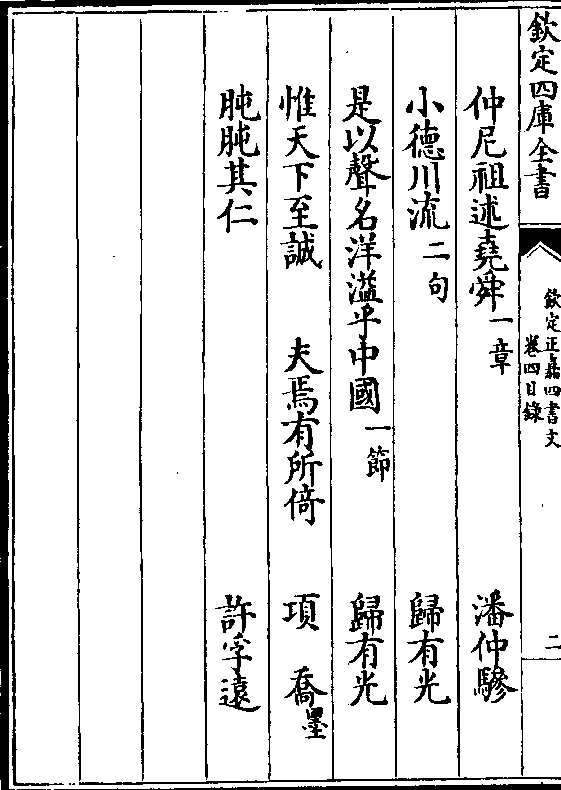 欽定四庫全書
欽定正嘉四書文
卷四目錄
二
仲尼祖述堯舜一章 潘仲驂
小德川流二句 歸有光
是以聲名洋溢乎中國一節 歸有光
惟天下至誠 夫焉有所倚 項喬墨
肫肫其仁 許孚遠